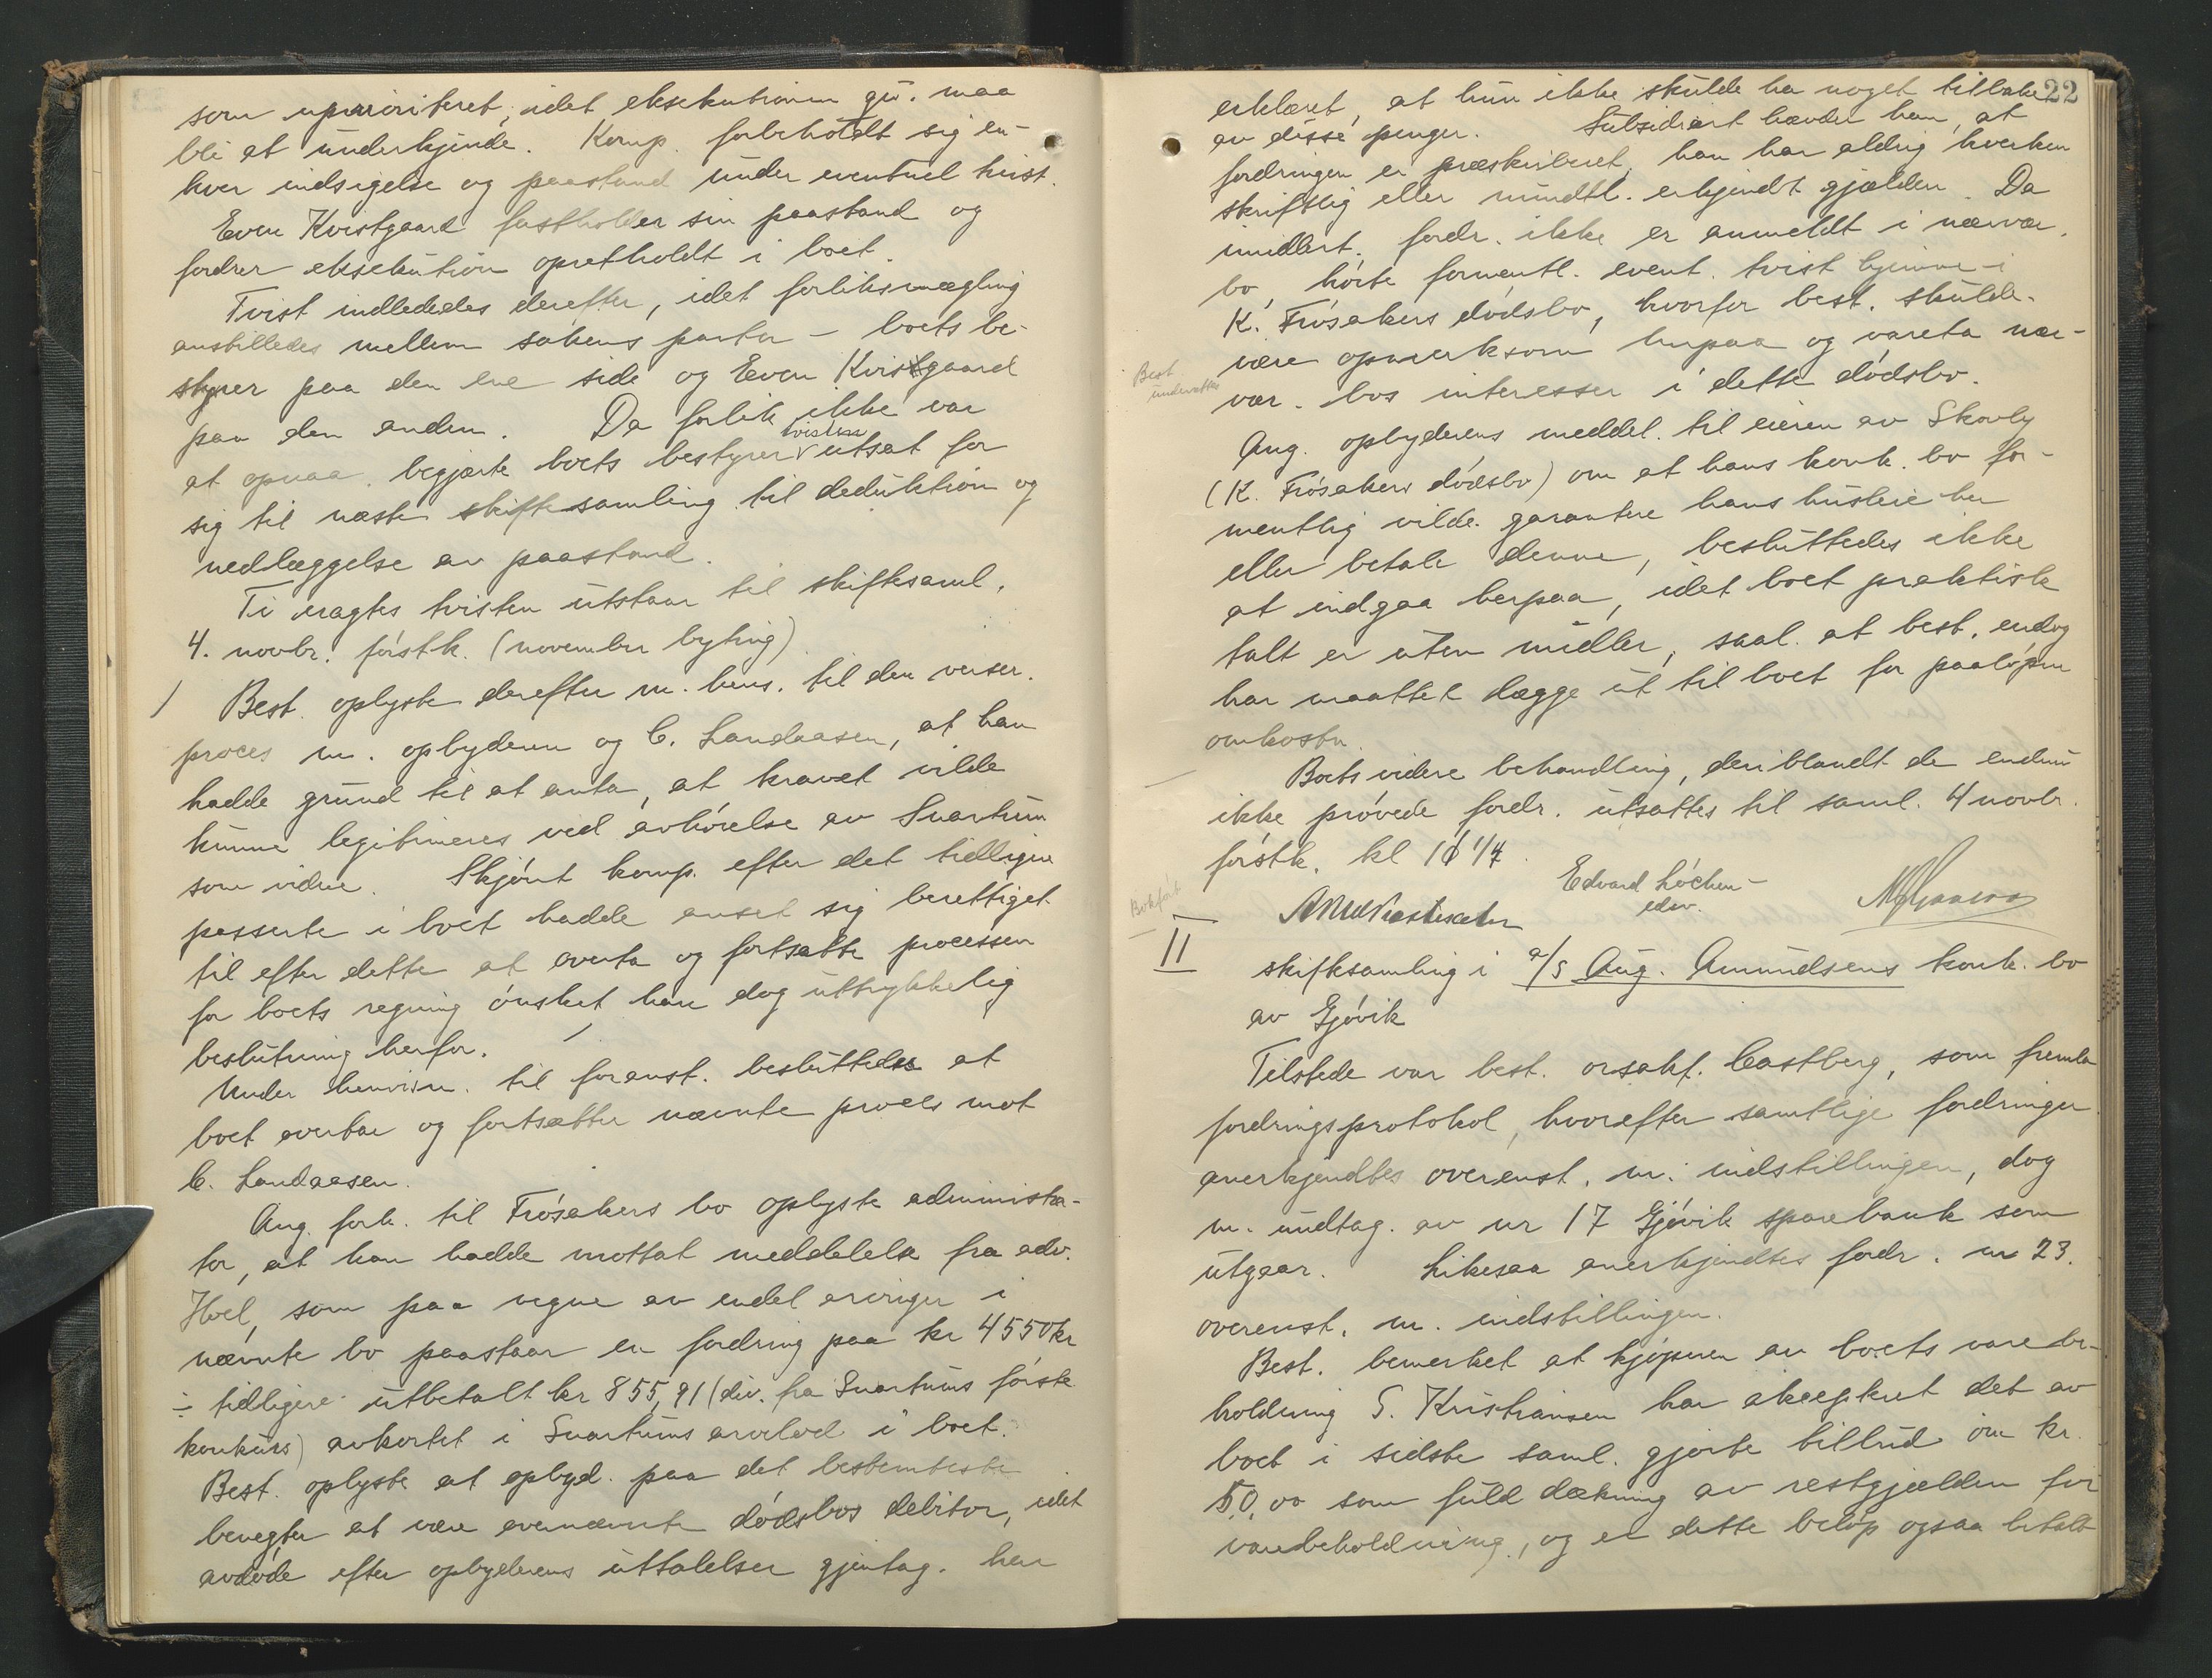 som uprioritert, idet eksekutionen gv. maa
bli at underkjende. Komp. forbeholdt sig en-
hver indsigelse og paastand under eventuel tvist.
Even Kvistgaard fastholder sin paastand og
fordrer eksekution opretholdt i boet.
Tvist indlededes derefter, idet forliksmægling
anstilledes mellem sakens parter – boets be-
styrer paa den ene side og Even Kvistgaard
paa den anden. Da forlik ikke var
at opnaa, begjærte boets bestyrer tvisten utsat for
sig til næste skiftesamling til deduktion og
nedlæggelse av paastand.
Ti eragtes tvisten utstaar til skiftesaml.
4. novbr. førstk. (november byting)
Best. oplyste derefter m. hens. til den verser.
proces m. opbyderen og C. Landaasen, at han
hadde grund til at anta, at kravet vilde
kunne legitimeres ved avhørelse av Svartum
som vidne. Skjønt komp. efter det tidligere
passerte i boet hadde anset sig berettiget
til efter dette at overta og fortsætte processen
for boets regning ønsket han dog uttrykkelig
beslutning herfor.
Under henvisn. til foranst. besluttedes at
boet overtar og fortsætter nævnte proces mot
C. Landaasen.
Ang. forh. til Frøsakers bo oplyste administra-
tor, at han hadde mottat meddelelse fra adv.
Hoel, som paa vegne av endel arvinger i
nævnte bo paastaar en fordring paa kr 4550 kr
÷ tidligere utbetalt kr 855,91 (div. fra Svartums første
konkurs) avkortet i Svartums arvelod i boet.
Best. oplyste at opbyd. paa det bestemteste
benegter at være overnævnte dødsbos debitor, idet
avdøde efter opbyderens uttalelser gjentag. har
22
erklæret, at hun ikke skulde ha noget tilbake
av disse penger. Subsidiært hævder han, at
fordringen er præskriberet, han har aldrig hverken
skriftlig eller mundtl. erkjendt gjælden. Da
imidlert. fordr. ikke er anmeldt i nærvær.
bo, hørte formentl. event. tvist hjemme i
K. Frøsakers dødsbo, hvorfor best. skulde
være opmerksom herpaa og vareta nær-
vær. bos interesser i dette dødsbo.
Best.
underrettes
Ang. opbyderens meddel. til eieren av Skovly
(K. Frøsakers dødsbo) om at hans konk. bo for-
mentlig vilde garantere hans husleie her
eller betale denne, besluttedes ikke
at indgaa herpaa, idet boet praktisk
talt er uten midler, saal. at best. endog
har maattet lægge ut til boet for paaløpne
omkostn.
Boets videre behandling, deriblandt de endnu
ikke prøvede fordr. utsattes til saml. 4 novbr.
førstk. kl 10 1/4.
Edvard Løchen
edsv.
Bokført
II
skiftesamling i a/s Aug. Amundsens konk. bo
av Gjøvik
Tilstede var best. orsakf. Castberg, som fremla
fordringsprotokol, hvorefter samtlige fordringer
anerkjendtes overenst. m. indstillingen, dog
m. undtag. av nr 17 Gjøvik sparebank som
utgaar. Likesaa anerkjendtes fordr. nr 23.
overenst. m. indstillingen.
Best. bemerket at kjøperen av boets varebe-
holdning S. Kristiansen har akceptert det av
boet i sidste saml. gjorte tilbud om kr.
50,00 som fuld dækning av restgjælden for
varebeholdning, og er dette beløp ogsaa betalt